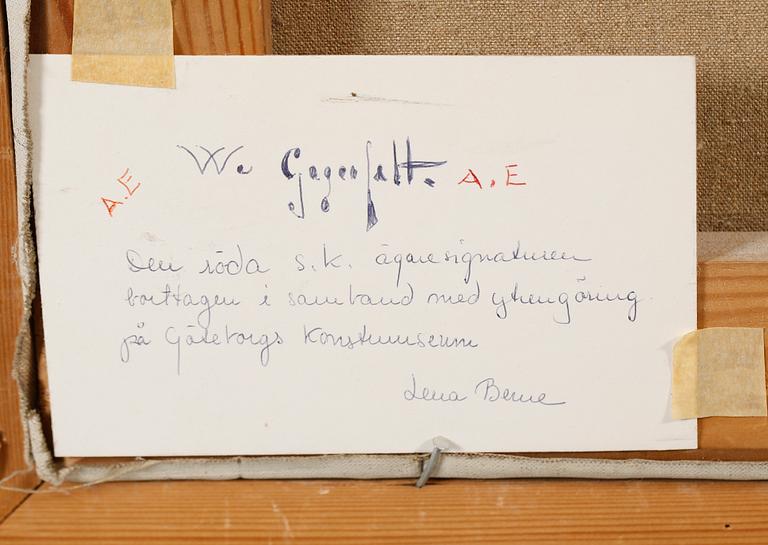 W. Gegerfelt. A.E
A.E
Den röda s.k. ägaresignaturen
borttagen i samband med ytrengöring
på Göteborgs Konstmuseum
Lena Berne